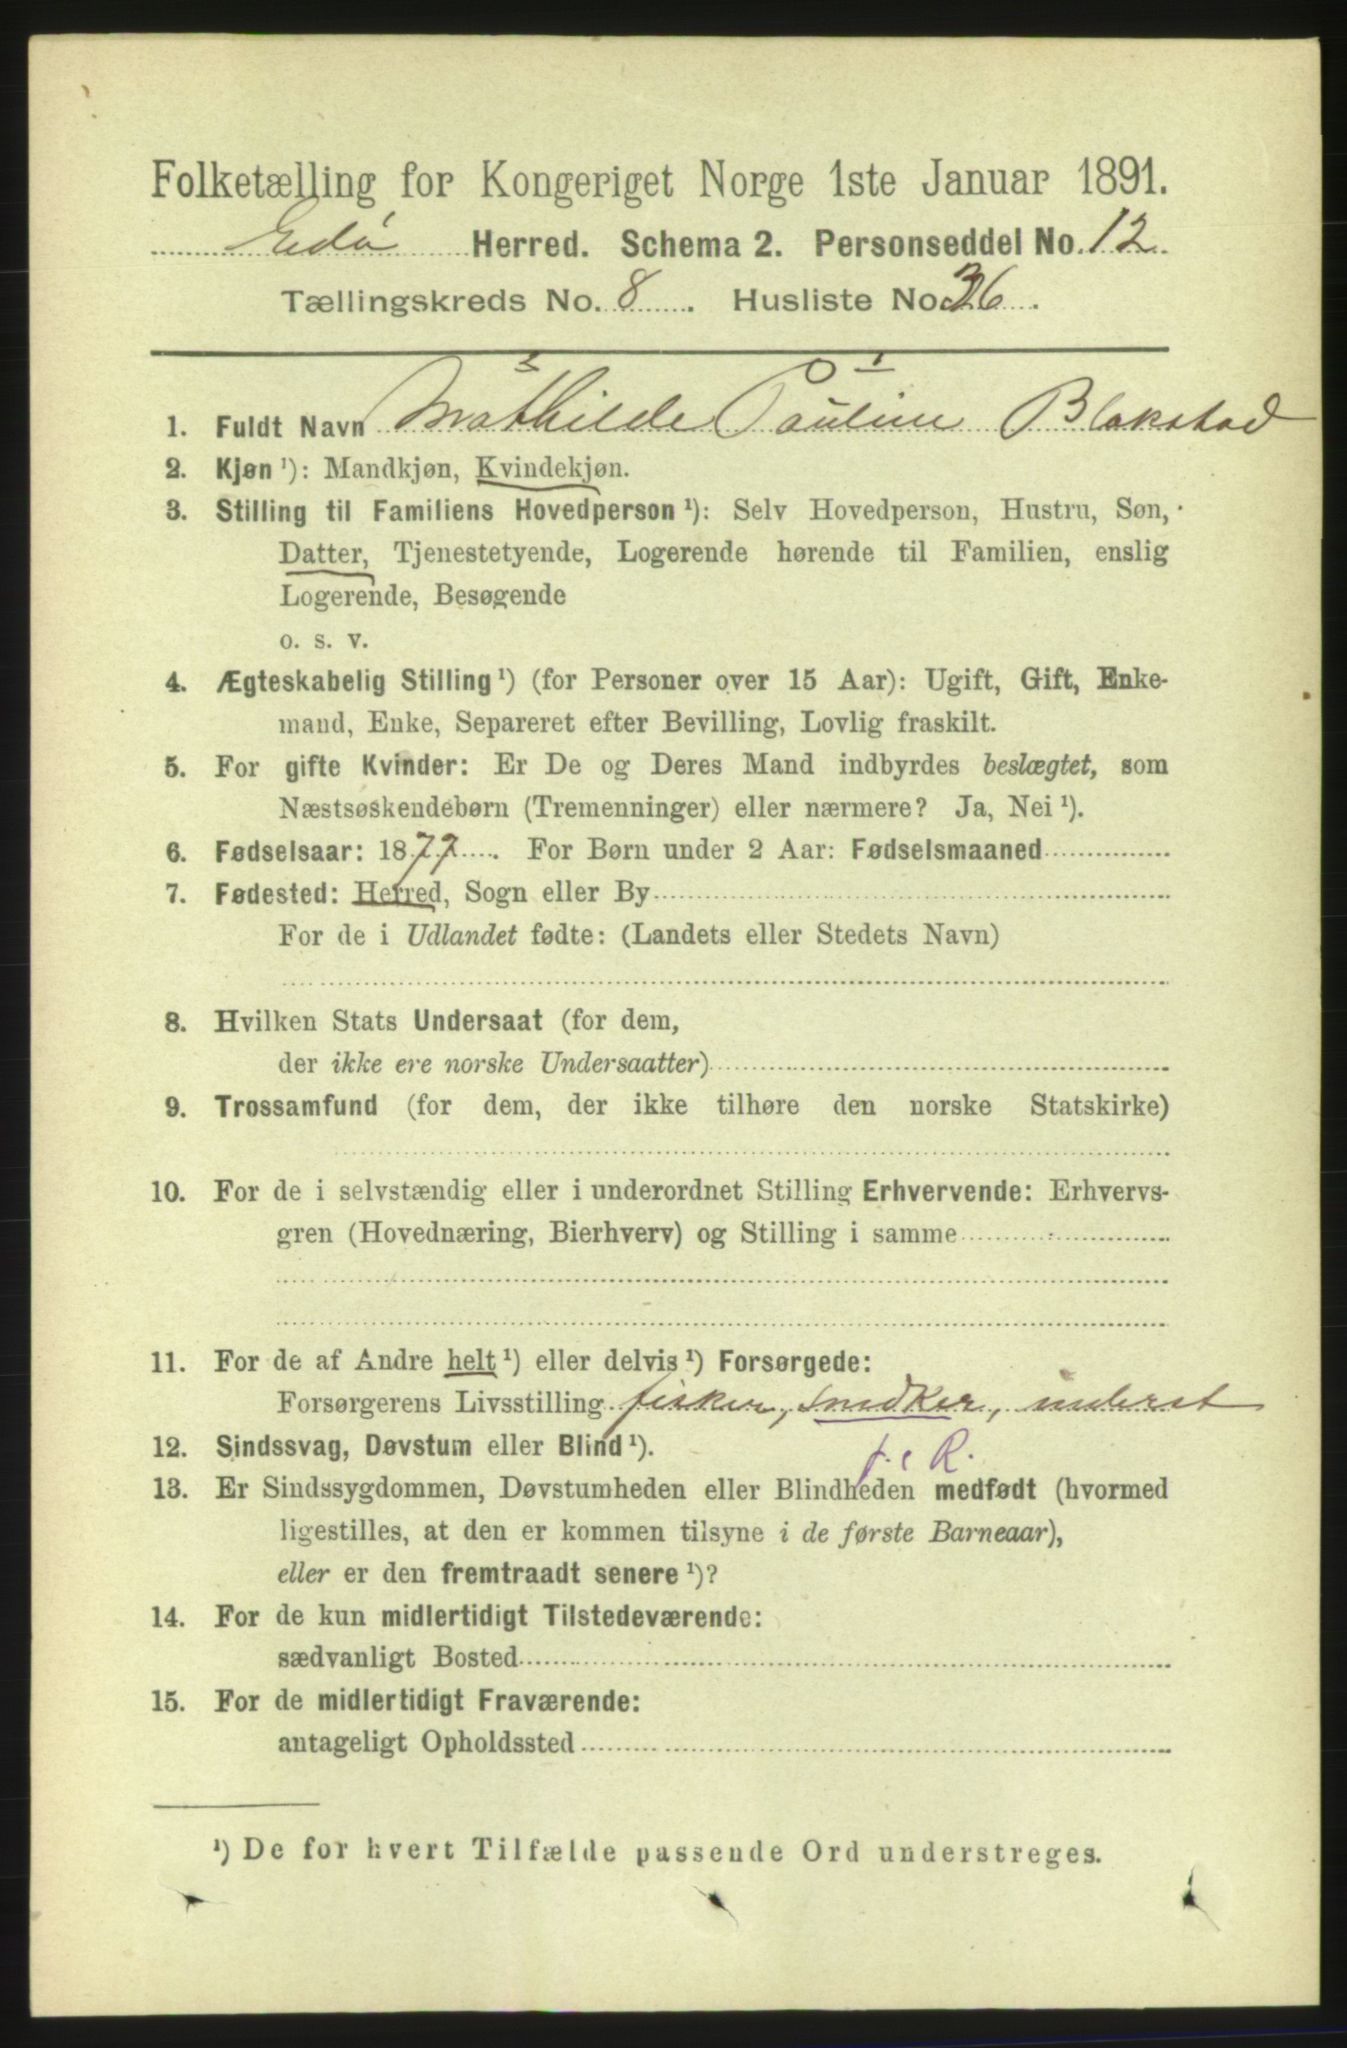 Folketælling for Kongeriget Norge 1ste Januar 1891.
Edø Herred. Schema 2. Personseddel No. 12
Tællingskreds No. 8. Husliste No. 36.
3 0 1
1. Fuldt Navn Mathilde Pauline Blakstad
2. Kjøn ¹): Mandkjøn, Kvindekjøn.
3. Stilling til Familiens Hovedperson ¹): Selv Hovedperson, Hustru, Søn,
Datter, Tjenestetyende, Logerende hørende til Familien, enslig
Logerende, Besøgende
o. s. v.
4. Ægteskabelig Stilling ¹) (for Personer over 15 Aar): Ugift, Gift, Enke-
mand, Enke, Separeret efter Bevilling, Lovlig fraskilt.
5. For gifte Kvinder: Er De og Deres Mand indbyrdes beslægtet, som
Næstsøskendebørn (Tremenninger) eller nærmere? Ja, Nei ¹).
6. Fødselsaar: 1877. For Børn under 2 Aar: Fødselsmaaned
7. Fødested: Herred, Sogn eller By
For de i Udlandet fødte: (Landets eller Stedets Navn)
8. Hvilken Stats Undersaat (for dem,
der ikke ere norske Undersaatter)
9. Trossamfund (for dem, der ikke tilhøre den norske Statskirke)
10. For de i selvstændig eller i underordnet Stilling Erhvervende: Erhvervs-
gren (Hovednæring, Bierhverv) og Stilling i samme
11. For de af Andre helt ¹) eller delvis ¹) Forsørgede:
Forsørgerens Livsstilling fisker, snedker, inderst
12. Sindssvag, Døvstum eller Blind ¹). f. R.
13. Er Sindssygdommen, Døvstumheden eller Blindheden medfødt (hvormed
ligestilles, at den er kommen tilsyne i de første Barneaar),
eller er den fremtraadt senere ¹)?
14. For de kun midlertidigt Tilstedeværende:
sædvanligt Bosted
15. For de midlertidigt Fraværende:
antageligt Opholdssted
¹) De for hvert Tilfælde passende Ord understreges.